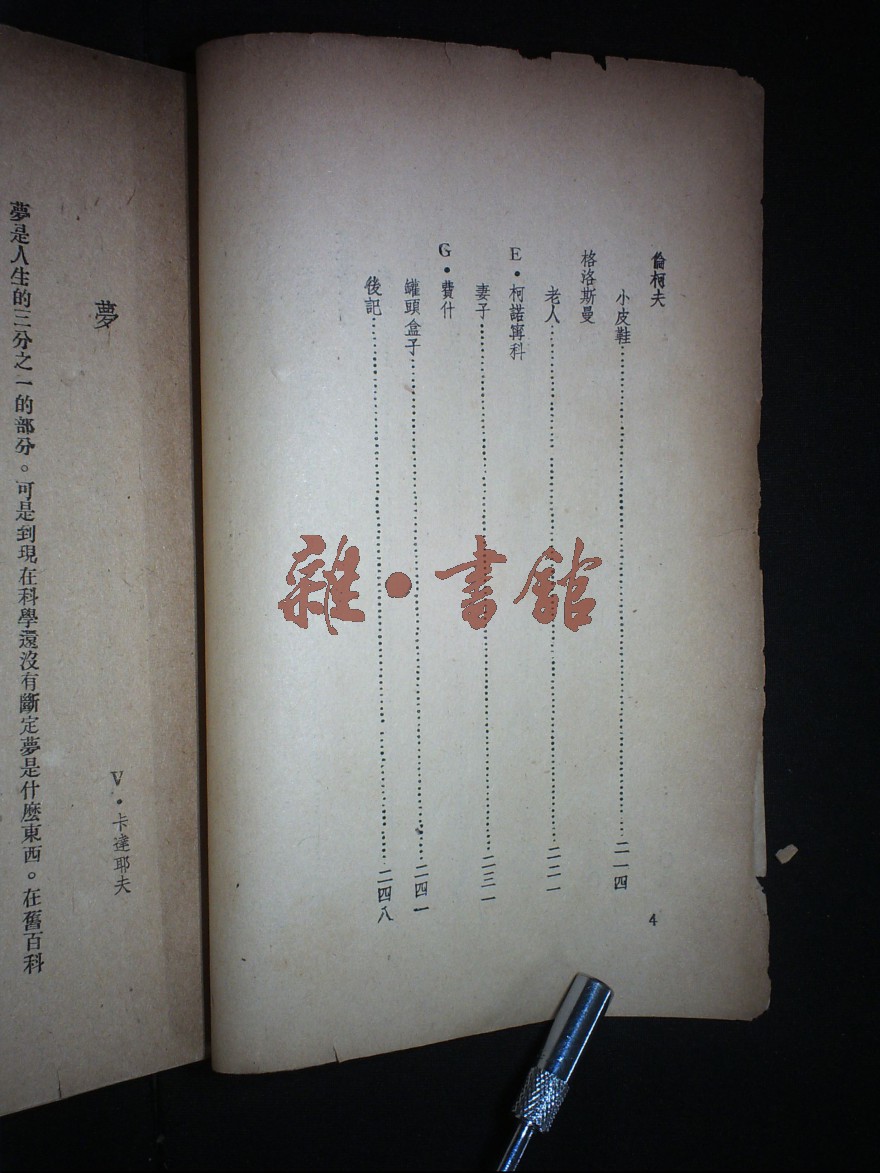 倫柯夫
小皮鞋……二一四
格洛斯曼
老人……二二一
E·柯諾甯科
妻子……二三一
G·費什
罐頭盒子……二四一
後記……二四八
4
雜·書館
夢
V·卡達耶夫
夢是人生的三分之一的部分。可是到現在科學還沒有斷定夢是什麼東西。在舊百科